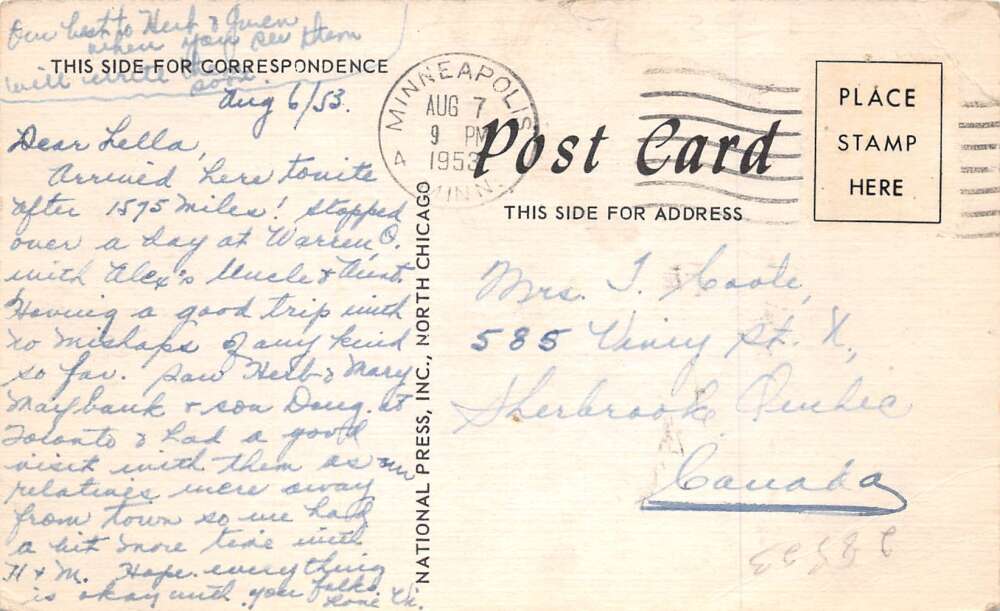 Our best to Herb & Gwen
when you see them
will write them
soon.
THIS SIDE FOR CORRESPONDENCE
Aug 6/53.
Dear Lella,
Arrived here tonite
after 1575 miles! Stopped
over a day at Warren, O.
with Alex's Uncle & Aunt.
Having a good trip with
no mishaps of any kind
so far. Saw Herb & Mary
Maybank & son Doug. at
Toronto & had a good
visit with them as our
relatives were away
from town so we had
a bit more time with
H & M. Hope everything
is okay with you folks.
Love Vi.
NATIONAL PRESS, INC., NORTH CHICAGO
MINNEAPOLIS
AUG 7
9 PM
1953
4 MINN.
Post Card
THIS SIDE FOR ADDRESS
PLACE
STAMP
HERE
Mrs. T. Coote,
585 Vimy St. N.,
Sherbrooke Quebec
Canada